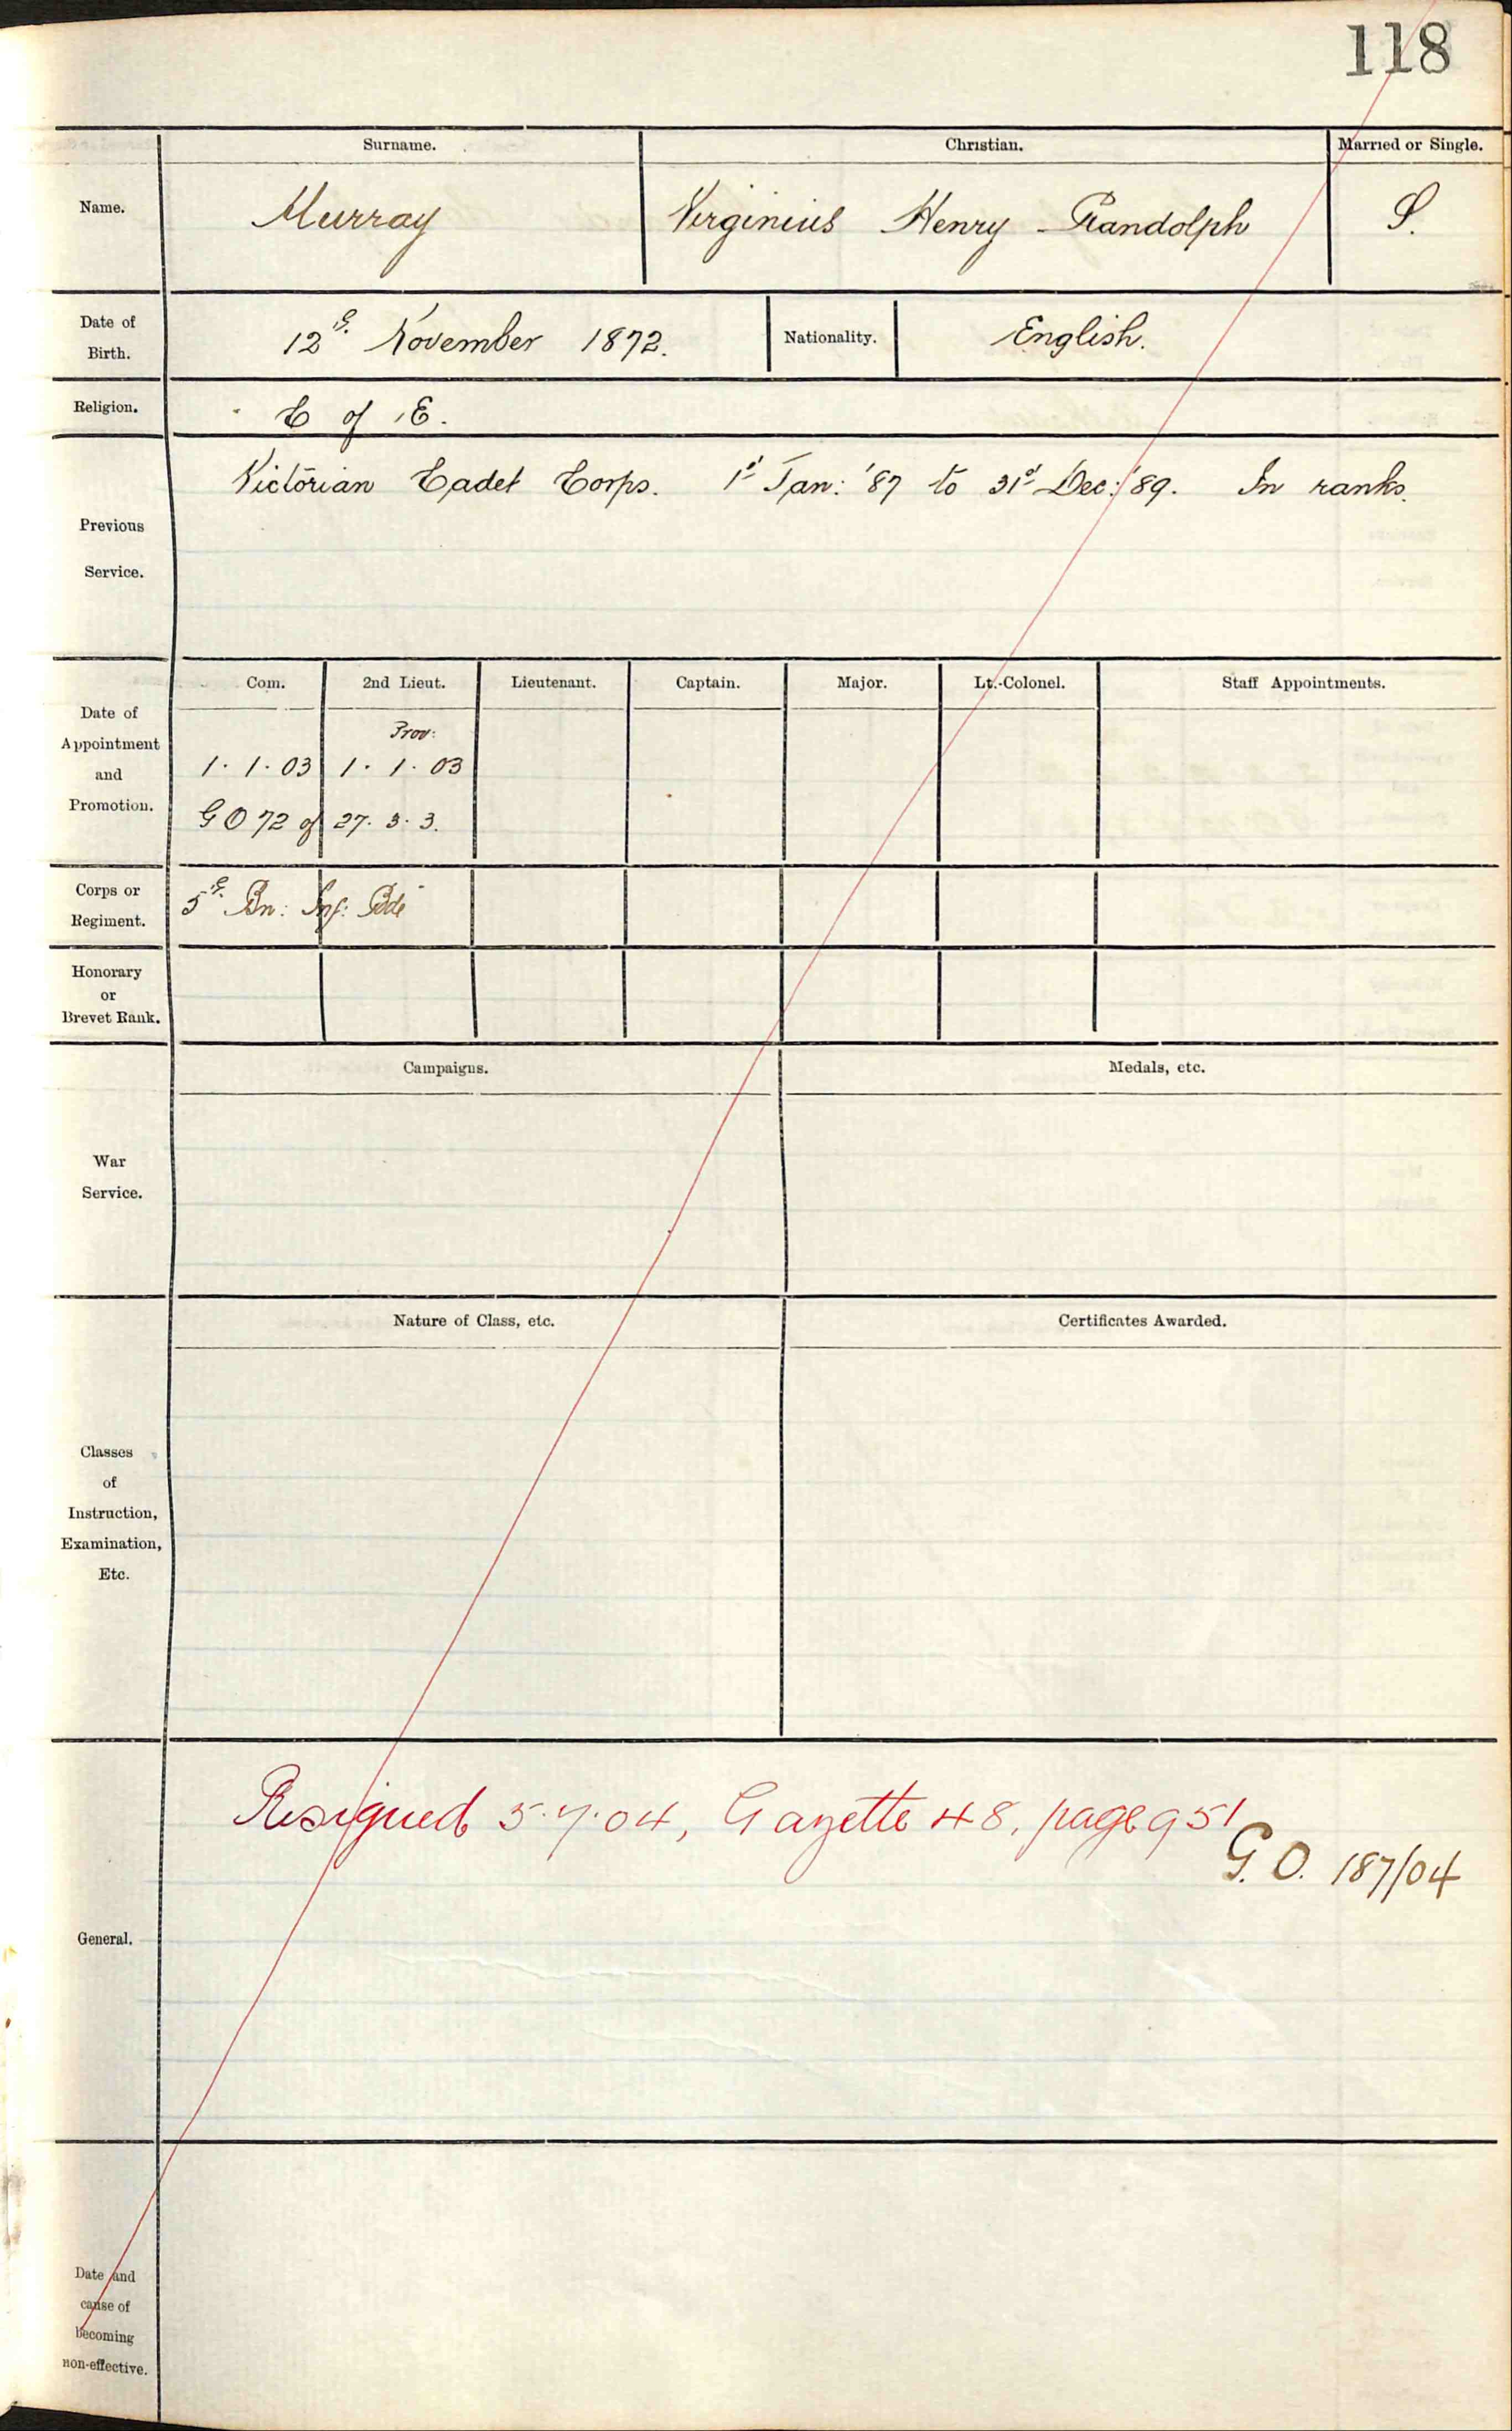 118
Surname. Christian. Married or Single.
Name. Murray Virginius Henry Randolph S.
Date of Birth. 12th. November 1872. Nationality. English.
Religion. C of E.
Victorian Cadet Corps. 1st Jan: '87 to 31st Dec: '89. In ranks.
Previous
Service.
Com. 2nd Lieut. Lieutenant. Captain. Major. Lt.-Colonel. Staff Appointments.
Date of
Appointment
and
Promotion.
Prov:
1. 1. 03 1. 1. 03
G O 72 of 27. 3. 3.
Corps or
Regiment.
5th. Bn: Inf: Bde
Honorary
or
Brevet Rank.
Campaigns. Medals, etc.
War
Service.
Nature of Class, etc. Certificates Awarded.
Classes
of
Instruction,
Examination,
Etc.
Resigned 5.7.04, Gazette 48, page 951
G.O. 187/04
General.
Date and
cause of
becoming
non-effective.